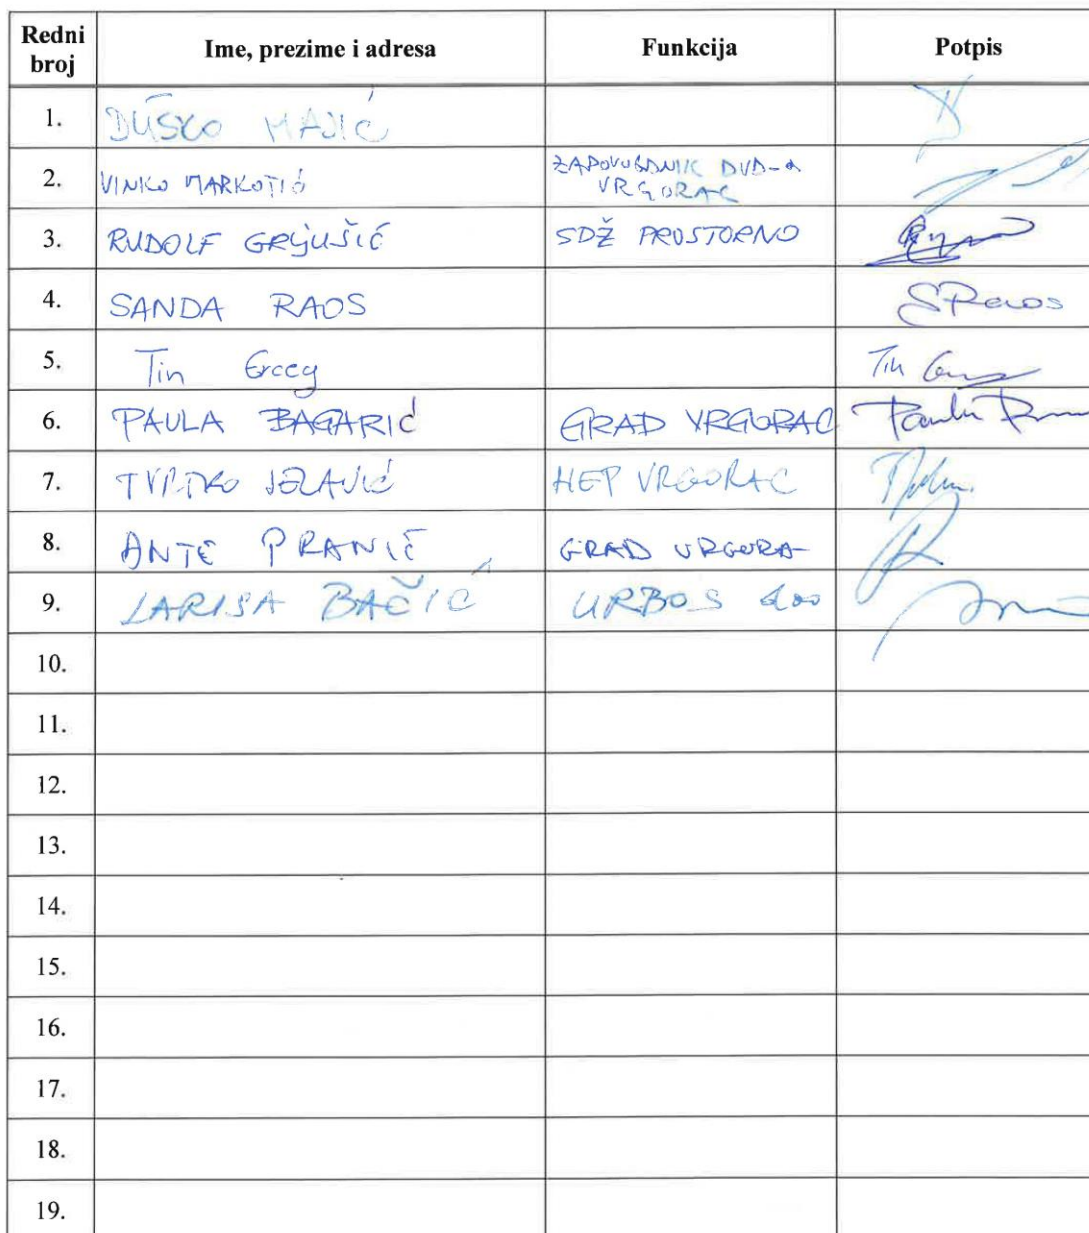 Redni broj Ime, prezime i adresa Funkcija Potpis
1. DUŠKO MAJIĆ
2. VINKO MARKOTIĆ ZAPOVJEDNIK DVD-a VRGORAC
3. RUDOLF GRLJUŠIĆ SDŽ PROSTORNO
4. SANDA RAOS SRaos
5. Tin Erceg Tin
6. PAULA BAGARIĆ GRAD VRGORAC Paula
7. TVRTKO JELAVIĆ HEP VRGORAC
8. ANTE PRANIĆ GRAD VRGORA-
9. LARISA BAČIĆ URBOS doo
10.
11.
12.
13.
14.
15.
16.
17.
18.
19.